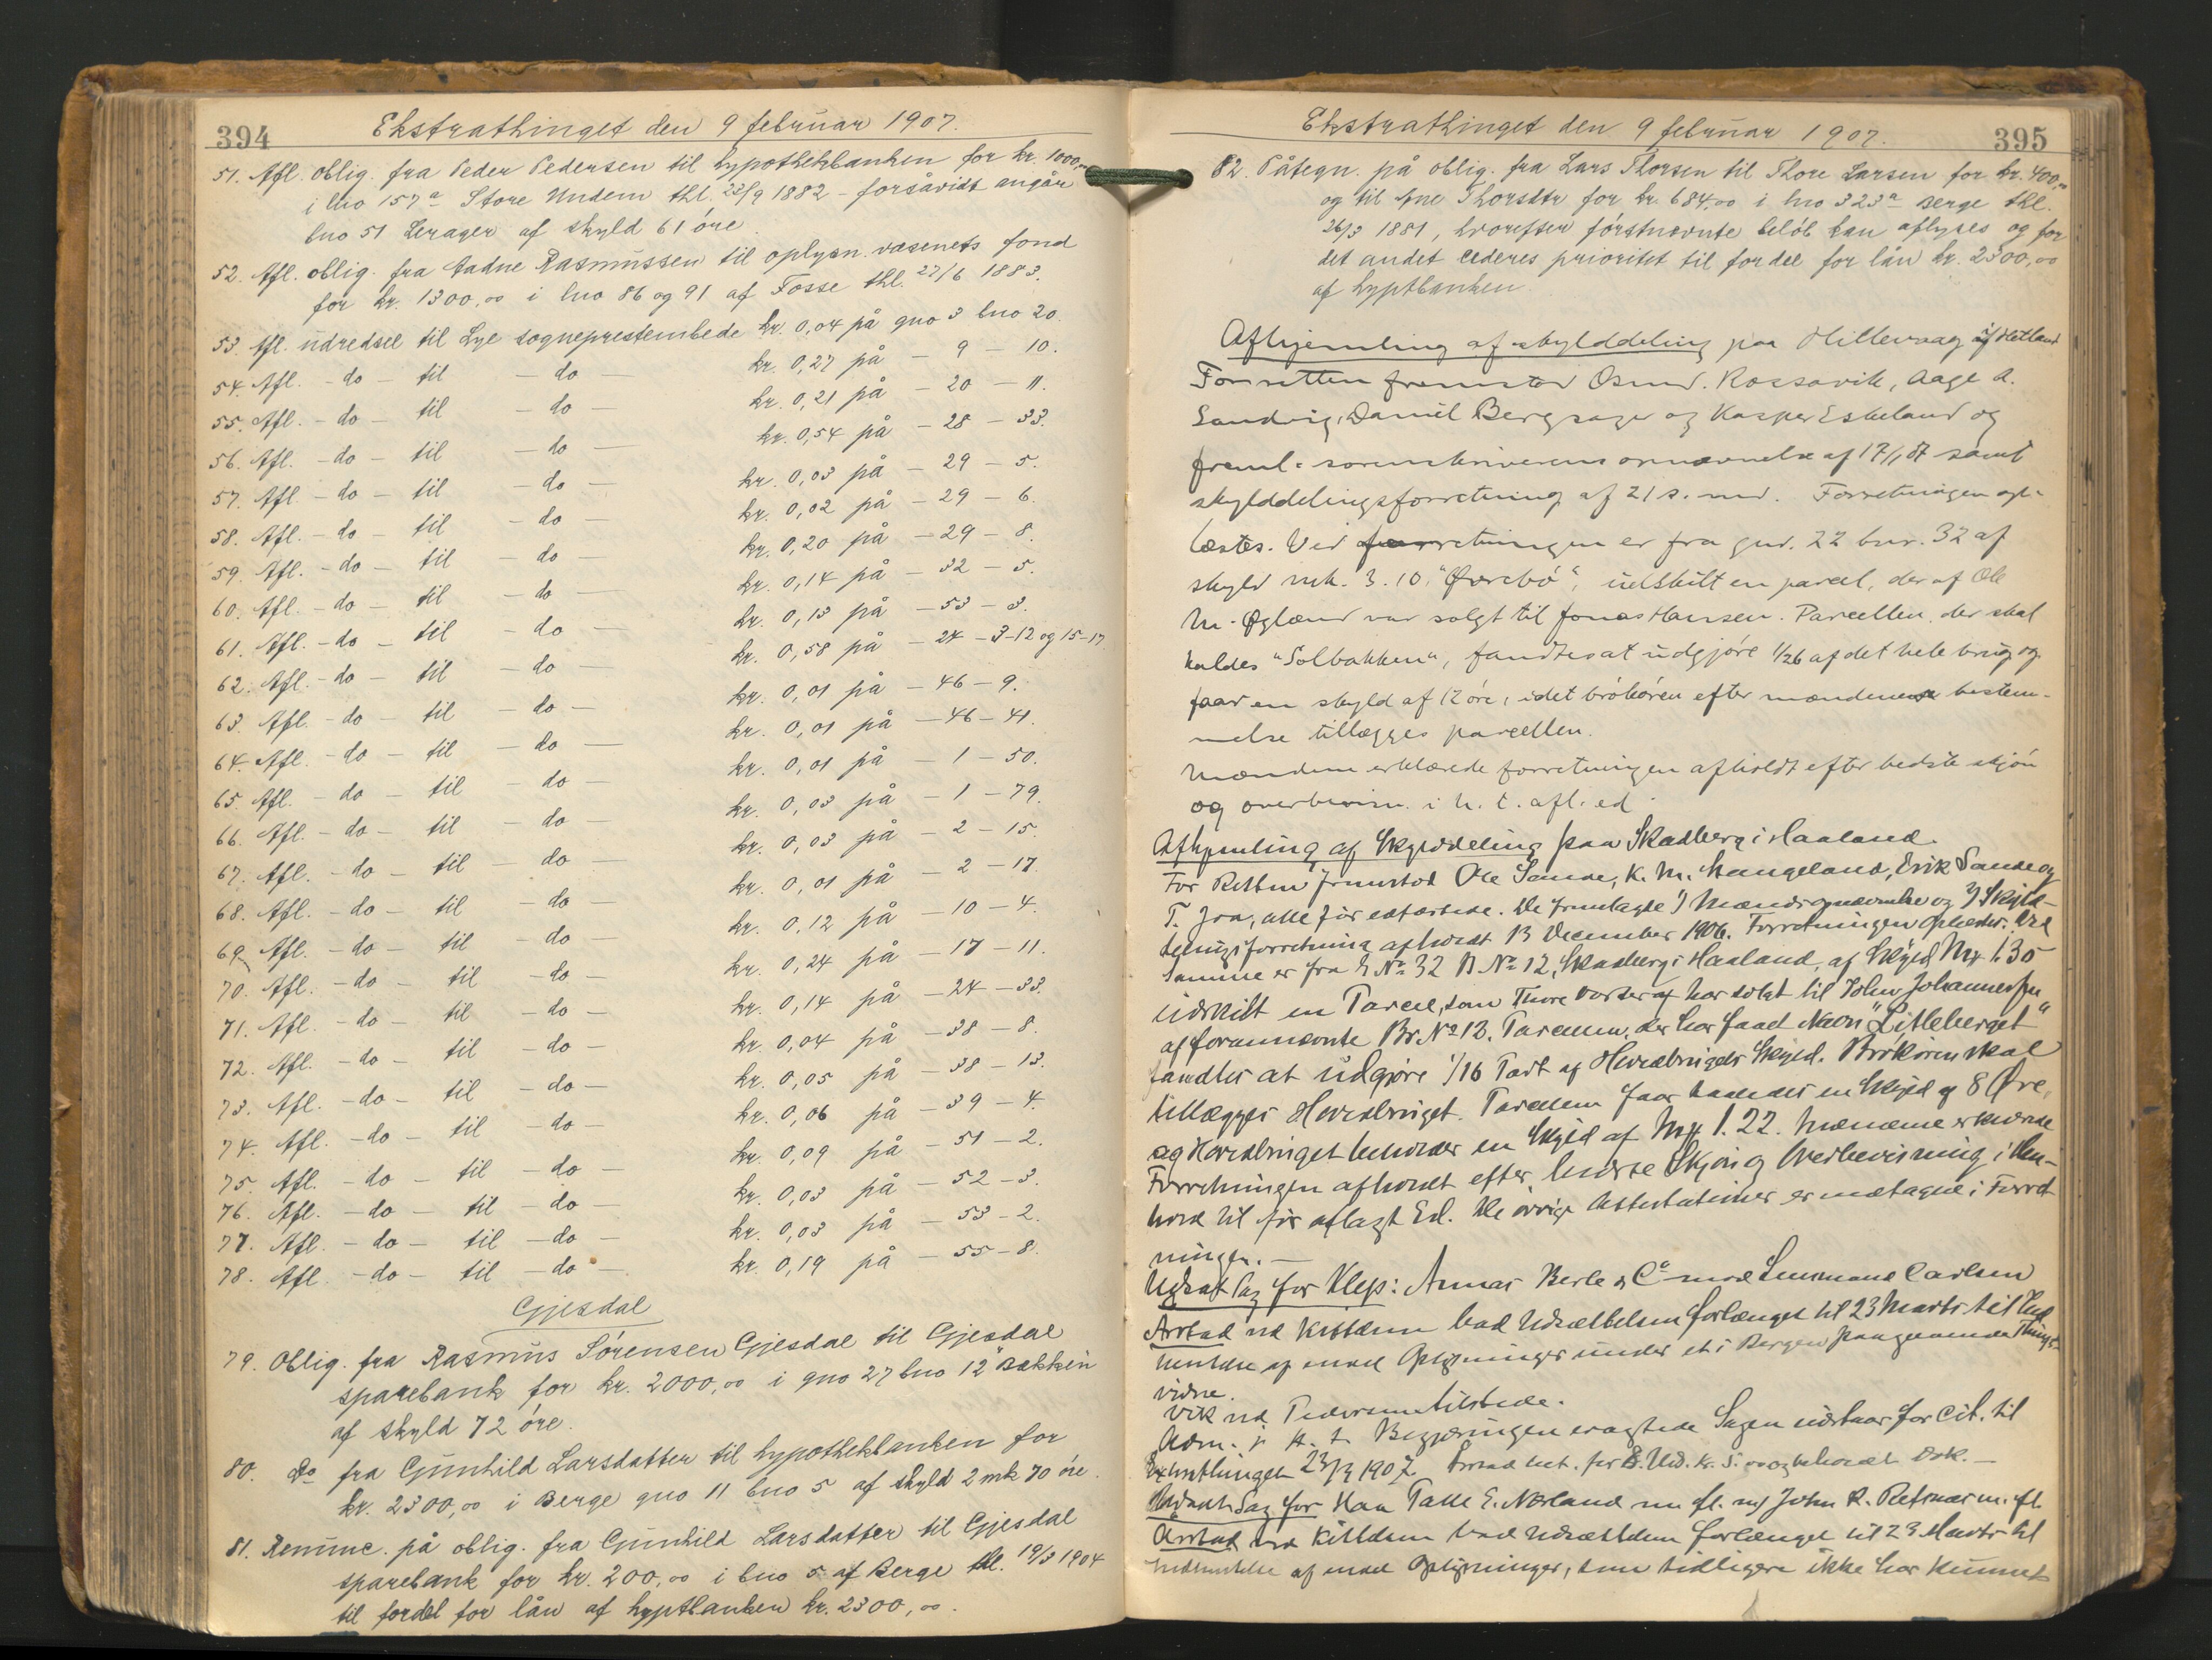 394
Ekstrathinget den 9 februar 1907.
51. Afl. oblig. fra Peder Pedersen til hypothekbanken for kr. 1000,00
i lno 157a Store Undem thl. 23/9 1882 - forsåvidt angår
bno 51 Lerager af skyld 61 öre.
52. Afl. oblig. fra Aadne Rasmussen til oplysn. væsenets fond
for kr. 1300,00 i lno 86 og 91 af Fosse thl. 27/6 1883.
53. Afl. udredsel til Lye sogneprestembede kr. 0,04 på gno 3 bno 20.
54. Afl. - do - til - do - kr. 0,27 på - 9 - 10.
55. Afl. - do - til - do - kr. 0,21 på - 20 - 11.
56. Afl. - do - til - do - kr. 0,54 på - 28 - 33.
57. Afl. - do - til - do - kr. 0,03 på - 29 - 5.
58. Afl. - do - til - do - kr. 0,02 på - 29 - 6.
59. Afl. - do - til do - kr. 0,20 på - 29 - 8.
60. Afl. - do - til - do - kr. 0,14 på - 32 - 5.
61. Afl. - do - til - do - kr. 0,13 på - 53 - 3.
62. Afl. - do - til - do - kr. 0,58 på - 24 - 3-12 og 15-17
63. Afl. - do - til - do - kr. 0,01 på - 46 - 9.
64. Afl. - do - til - do - kr. 0,01 på - 46 - 41.
65. Afl. - do - til - do - kr. 0,01 på - 1 - 50.
66. Afl. - do - til - do - kr. 0,03 på - 1 - 79.
67. Afl. - do - til - do - kr. 0,03 på - 2 - 15.
68. Afl. - do - til - do - kr. 0,01 på - 2 - 17.
69. Afl. - do - til - do - kr. 0,12 på - 10 - 4.
70. Afl. - do - til - do - kr. 0,24 på - 17 - 11.
71. Afl. - do - til - do - kr. 0,14 på - 24 - 33.
72. Afl. - do - til - do - kr. 0,04 på - 38 - 8.
73. Afl. - do - til - do - kr. 0,05 på - 38 - 13.
74. Afl. - do - til - do - kr. 0,06 på - 39 - 4.
75. Afl. - do - til - do - kr. 0,09 på - 51 - 2.
76. Afl. - do - til - do - kr. 0,03 på - 52 - 3.
77. Afl. - do - til - do - kr. 0,03 på - 53 - 2.
78. Afl. - do - til - do - kr. 0,19 på - 55 - 8.
Gjesdal
79. Oblig. fra Rasmus Sörensen Gjesdal til Gjesdal
sparebank for kr. 2000,00 i gno 27 bno 12 "Bakken"
af skyld 72 öre.
80. Do fra Gunhild Larsdatter til hypothekbanken for
kr. 2300,00 i Berge gno 11 bno 5 af skyld 2 mk 70 öre.
81. Renunc. på oblig. fra Gunhild Larsdatter til Gjesdal
sparebank for kr. 200,00 i bno 5 af Berge thl. 19/3 1904
til fordel for lån af hyptbanken kr. 2300,00.
Ekstrathinget den 9 februar 1907.
395
82. Påtegn. på oblig. fra Lars Thorsen til Thore Larsen for kr. 400,00
og til Ane Thorsdtr for kr. 684,00 i lno 323a Berge thl.
26/3 1881, hvorefter förstnævnte belöb kan aflyses og for
det andet cederes prioritet til fordel for lån kr. 2300,00
af hyptbanken.
Afhjemling af skylddeling paa Hillevaag i Hetland
For retten fremstod Osmd. Rossavik, Aage A.
Sandvig, Daniel Bergsage og Kasper Eskeland og
freml. sorenskriverens opnævnelse af 17/1 07 samt
skylddelingsforretning af 21 s. md. Forretningen op-
læstes. Ved forretningen er fra gnr. 22 bnr. 32 af
skyld mk. 3.10, "Övrebö", udskilt en parcel, der af Ole
M. Ögland var solgt til Jonas Hansen. Parcellen, der skal
kaldes "Solbakken", fandtes at udgjöre 1/26 af det hele brug og
faar en skyld af 12 öre, idet brökören efter mændenes bestem-
melse tillægges parcellen.
Mændene erklærede forretningen afholdt efter bedste skjön
og overbevisn. i h. t. afl. ed.
Afhjemling af Skylddeling paa Skadberg i Haaland.
For Retten fremstod Ole Sande, K. M. Mangeland, Erik Sande og
T. Joa, alle för edfæstede. De fremlagde 1) Mændsopnævnelse og 2) Skyld-
delingsforretning afholdt 13 December 1906. Forretningen oplæstes. Ved
samme er fra G No 32 B No 12, Skadberg i Haaland, af Skyld Mk 1.30
udskilt en Parcel, som Thore har solgt til John Johannessen
af forannævnte Br. No 12. Parcellen, der har faaet Navn "Litleberget"
fandtes at udgjöre 1/16 Part af Hovedbrugets Skyld. Brökören skal
tillægges Hovedbruget. Parcellen faar saaledes en Skyld af 8 Öre,
og Hovedbruget beholder en Skyld af Mk 1.22. Mændene erklærede
Forretningen afholdt efter bedste Skjön og Overbevisning i Hen-
hold til för aflagt Ed. De övrige Attestationer er medtagne i Forret-
ningen. -
Udsat Sag for Klep: Annar Berle & Co mod Lensmand Carlsen
Arstad ved Kittelsen bad Udsættelsen forlænget til 23 Marts til Ind-
hentelse af endel Oplysninger under et i Bergen paagaaende Things-
vidne.
Vik ved Pedersen tilstede.
Adm. i H. t. Begjæringen eragtede Sagen udstaar for Cit. til
Extrathinget 23/3 1907.
Udsat Sag for Haa Talle E. Nærland m. fl. m/ John R. Refsnæs m. fl.
Arstad ved Kittelsen bad Udsættelsen forlænget til 23 Marts til
Indhentelse af endel Oplysninger, som tidligere ikke har kunnet